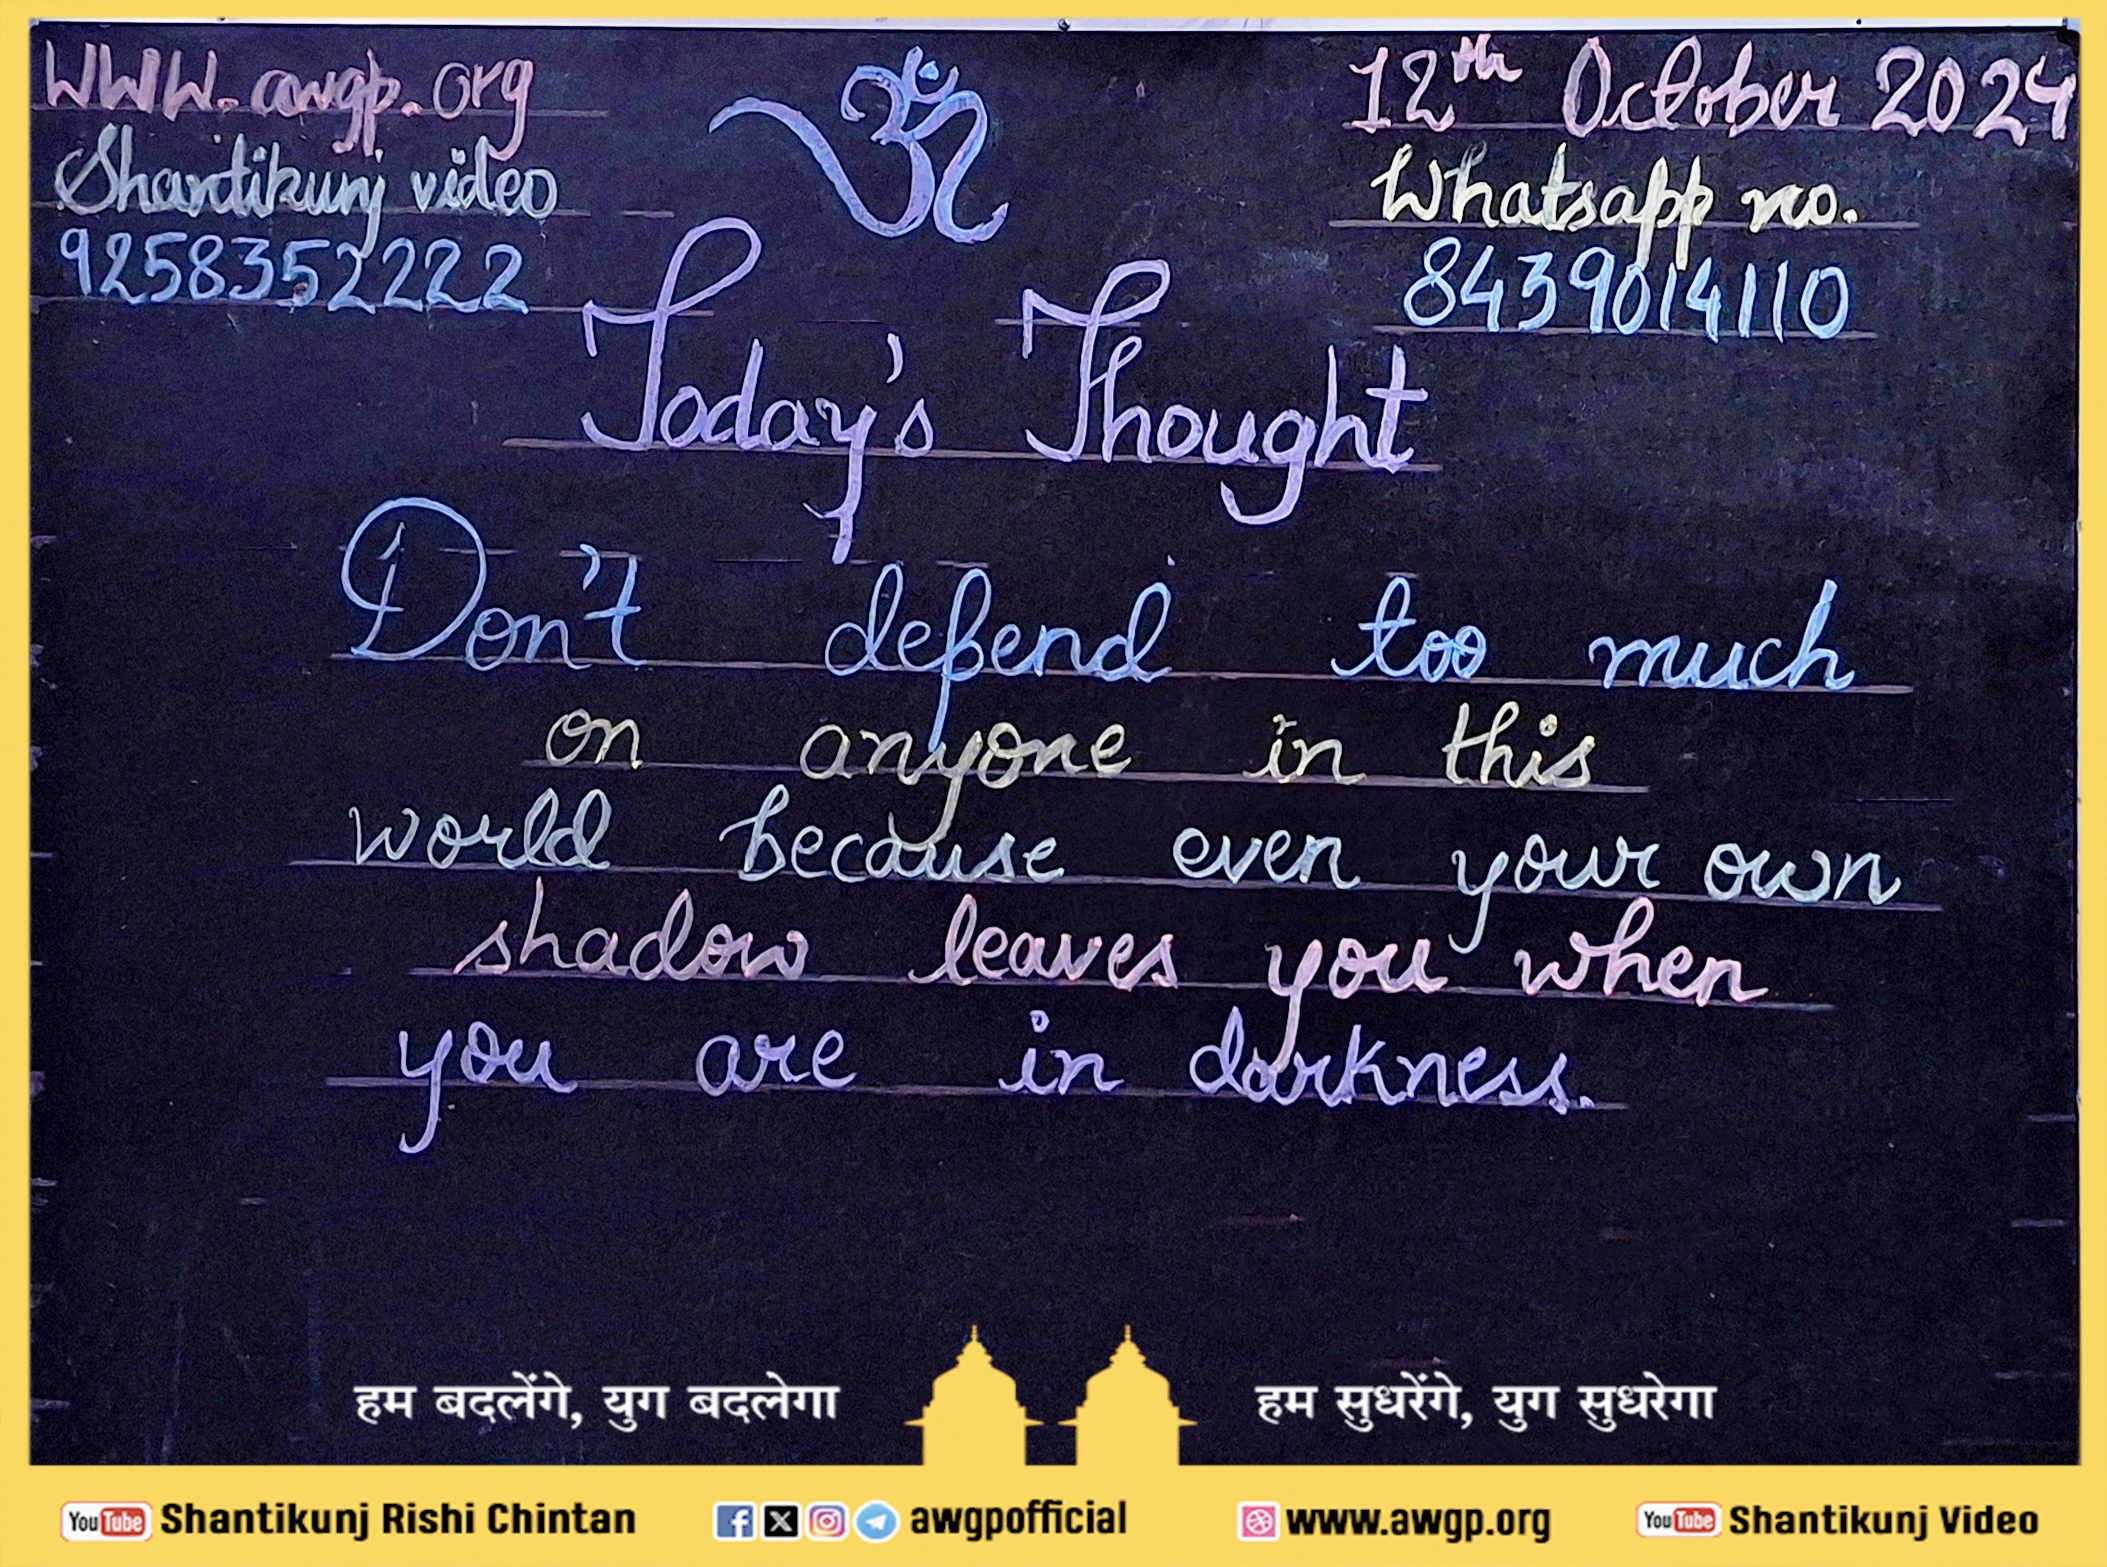 WWW.awgp.org
Shantikunj video
9258352222
ॐ
12th October 2024
Whatsapp no.
8439014110
Today's Thought
Don't depend too much
on anyone in this
world because even your own
shadow leaves you when
you are in darkness.
हम बदलेंगे, युग बदलेगा
हम सुधरेंगे, युग सुधरेगा
YouTube Shantikunj Rishi Chintan
awgpofficial
www.awgp.org
YouTube Shantikunj Video